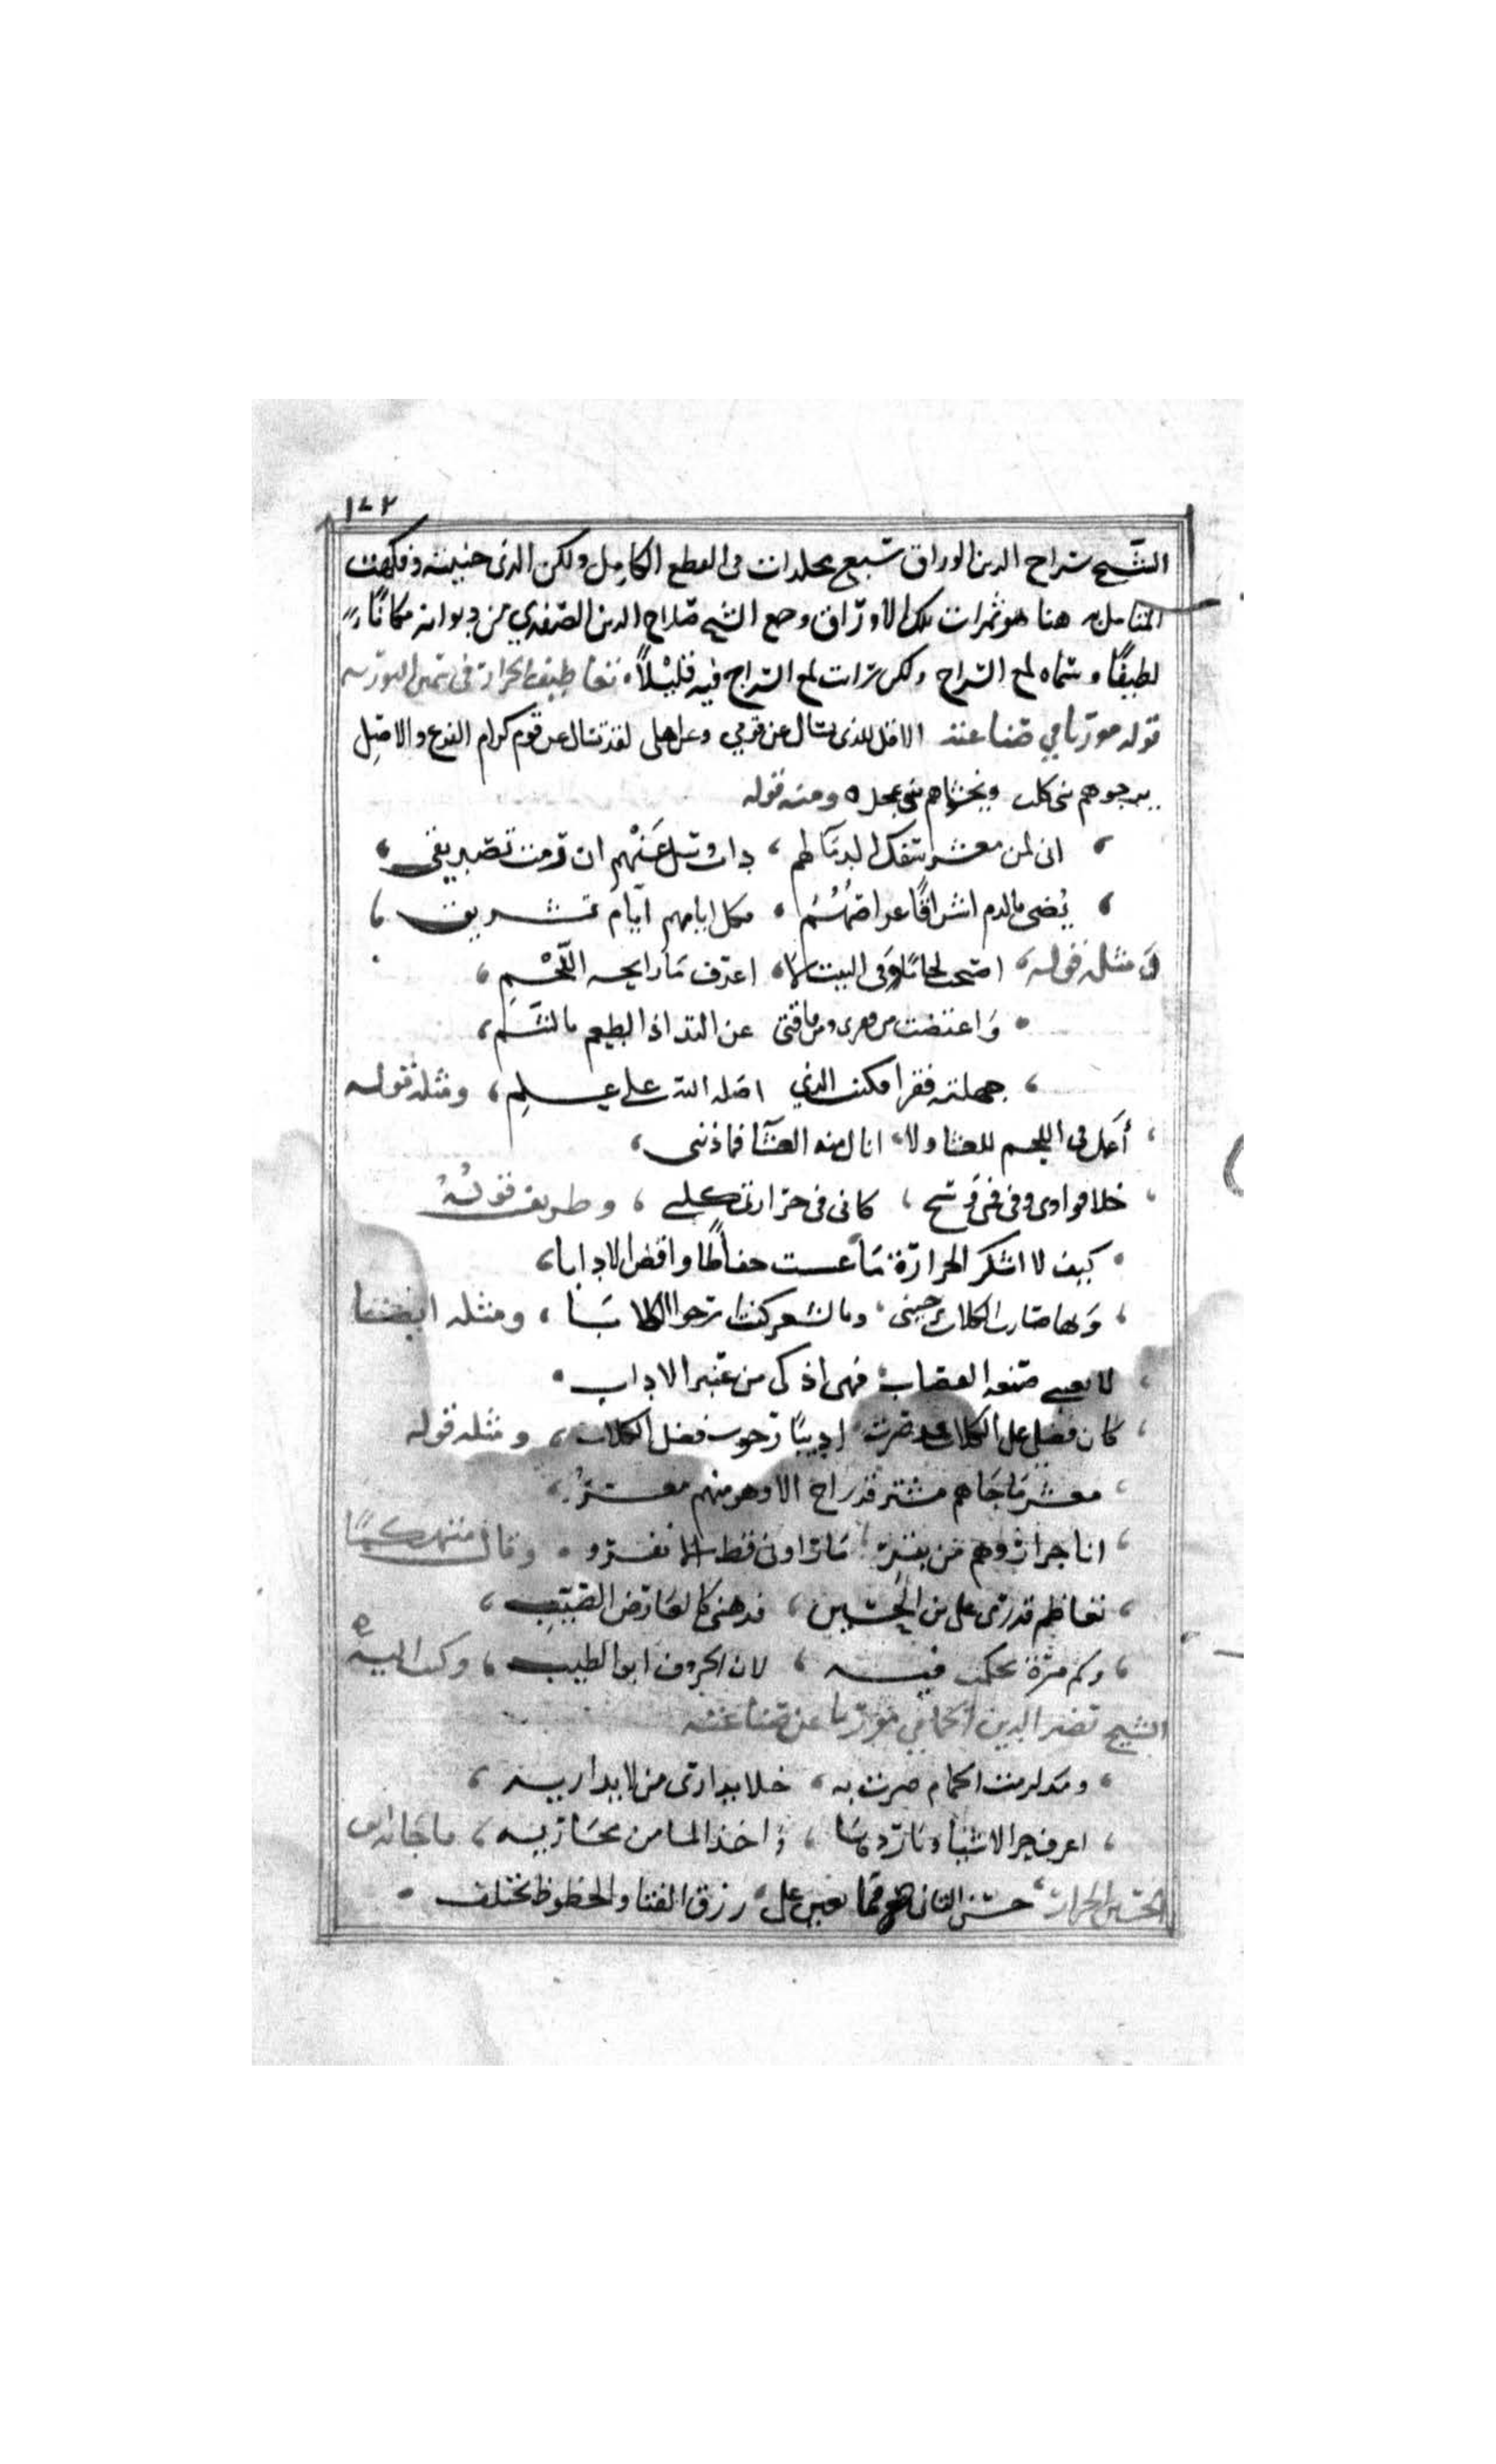 ١٧٢
الشيخ سراج الدين الوراق سبع مجلدات في القطع الكامل ولكن الذي جنيته وفكهت
المتامل به هنا هو ثمرات تلك الاوراق وضع الشيخ صلاح الدين الصفدي من ديوانه مكانا
لطيفا وسماه لمع السراج ولكن رات لمع السراج فيه قليلا
قوله موريا في صناعته الا قل للذي يسال عن قومي وعن اهلي لقد تسال عن قوم كرام الفرع والاصل
يرجوهم بني كلب ويخشاهم بني عجل ٥ ومنه قوله
، اني لمن معشر سفك الدما لهم ، داب وسل عنهم ان رمت تصديقي ،
، يضي بالدم اشراقا عراصهم ، فكل ايامهم ايام تشريق ،
ومثله قوله ، اصبحت لحاما وفي البيت لا ، اعرف ما رايحه اللحم ،
• واعتضت من فقري ومن فاقتي عن التذاذ الطعم بالشم ،
، جهلته فقرا فكنت الذي اضله الله على علم ، ومثله قوله
، أعمل في اللحم للعشا ولا ، انال منه العشا فما ذنبي ،
، خلا فوادي وفي فمي وسخ ، كاني في جزارتي كلبي ، وظريف قوله
• كيف لا اشكر الجزارة ما عشت حفاظا وارفض الادابا ،
، وبها صارت الكلاب ترجيني ، وبالشعر كنت ارجوا الكلابا ، ومثله ايضا
، لا تعبي صنعه القصاب فهي اذكى من عنبر الاداب •
، كان فضلي على الكلاب فمذ صرت اديبا رجوت فضل الكلاب ، ومثله قوله
، معشر ما جاهم مشتر قد راح الا وهو منهم معسر ،
، انا جزار وهم من بقر ، ما راوني قط الا نفروا • وقال متهكما
، تعاظم قدري على بن الحسين ، فذهني كالعارض الصيب ،
، وكم مرة تحكمت فيه ، لان الخروف ابو الطيب ، وكتب اليه
الشيخ نصير الدين الحمامي موريا عن صناعته
، ومذ لزمت الحمام صرت به ، خلا يداري من لا يداريه ،
، اعرف حر الاشيا وباردها ، واخذ الما من مجاريه ، فاجابه ابو
الحسين الجزار ، حسن التاني مما يعين على ، رزق الفتى والحظوظ تختلف •